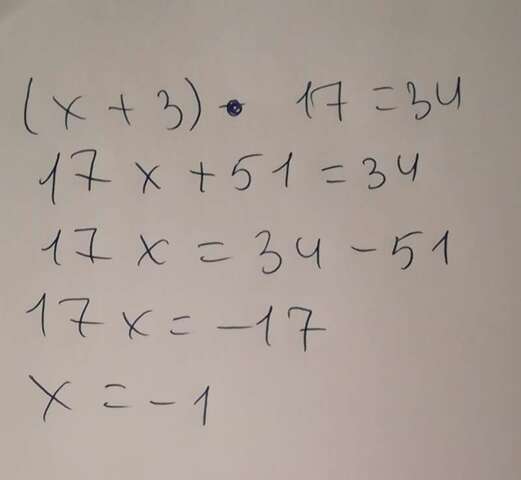 (x + 3) • 17 = 34
17x + 51 = 34
17x = 34 - 51
17x = -17
x = -1